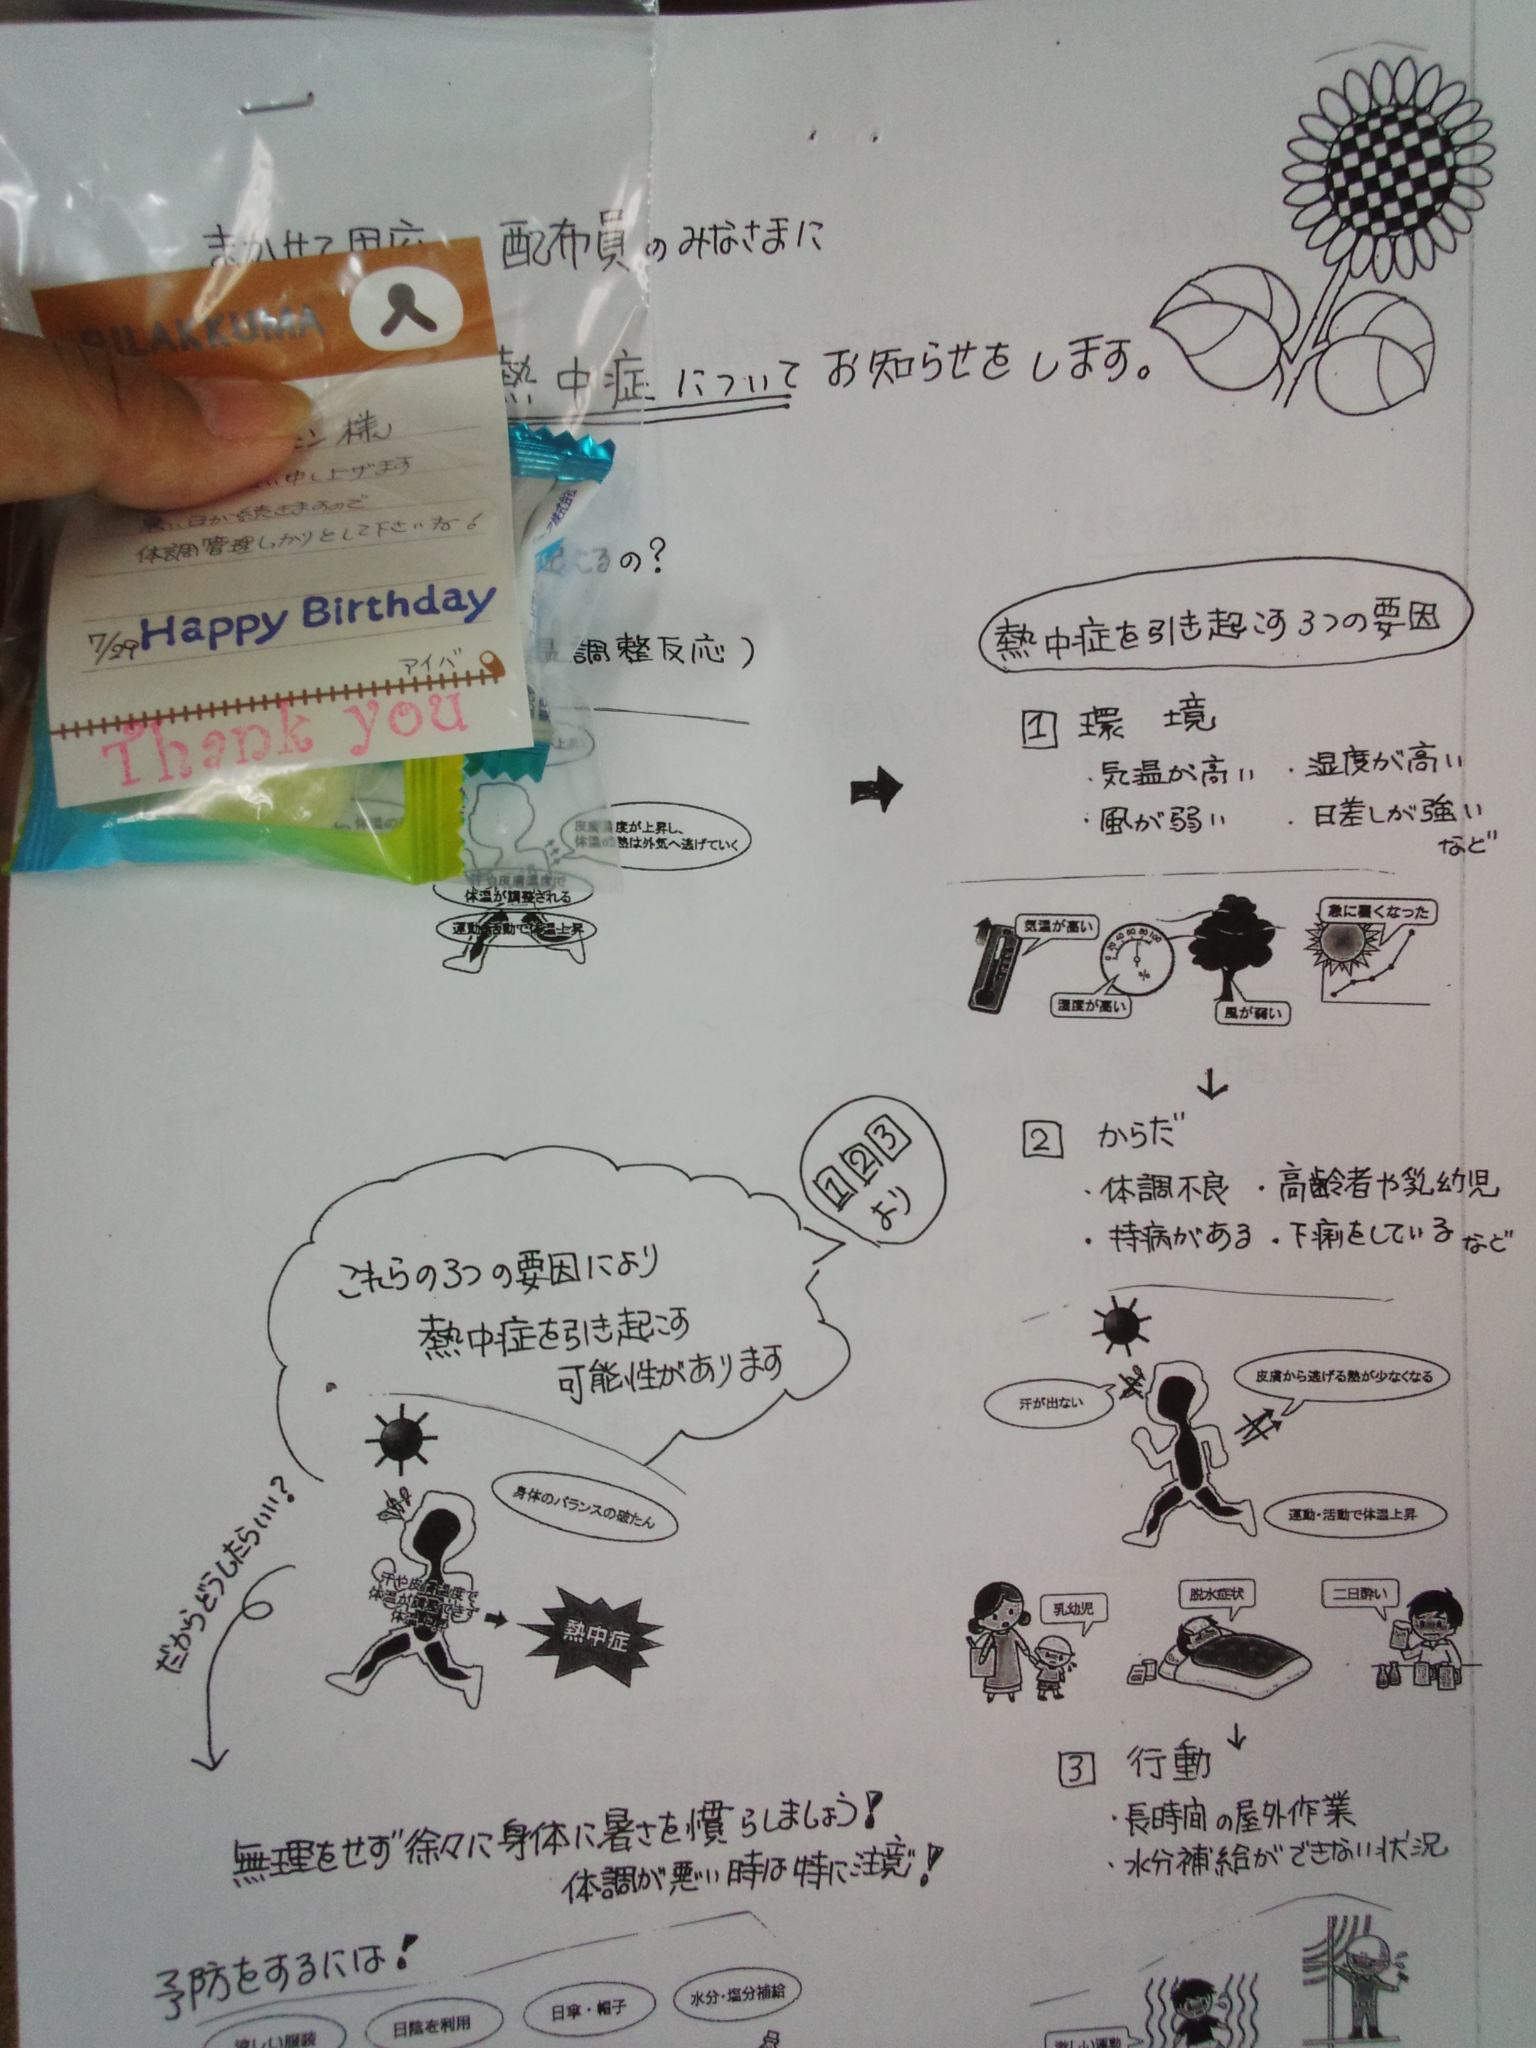 配布員のみなさまに
熱中症についてお知らせをします。
RILAKKUMA
様
申し上げます
暑い日が続きますので
体調管理しっかりとして下さいね
7/29 Happy Birthday
アイバ
Thank you
起こるの?
調整反応)
皮膚温度が上昇し、
体温の熱は外気へ逃げていく
体温が調整される
運動・活動で体温上昇
熱中症を引き起こす3つの要因
1 環境
・気温が高い ・湿度が高い
・風が弱い ・日差しが強い
など
気温が高い
湿度が高い
風が弱い
急に暑くなった
2 からだ
・体調不良 ・高齢者や乳幼児
・持病がある ・下痢をしている など
汗が出ない
皮膚から逃げる熱が少なくなる
運動・活動で体温上昇
乳幼児
脱水症状
二日酔い
3 行動
・長時間の屋外作業
・水分補給ができない状況
激しい運動
1 2 3
より
これらの3つの要因により
熱中症を引き起こす
可能性があります
身体のバランスの破たん
汗や皮膚温度で
体温が調整できず
熱中症
だからどうしたらいい?
無理をせず徐々に身体に暑さを慣らしましょう!
体調が悪い時は特に注意!
予防をするには!
涼しい服装
日陰を利用
日傘・帽子
水分・塩分補給